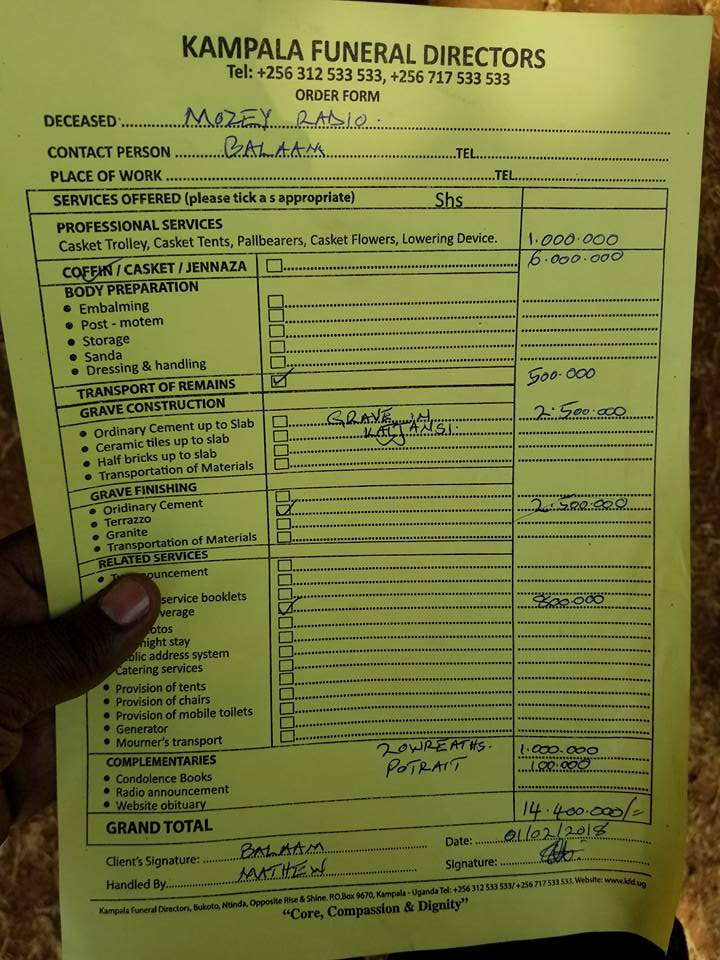 KAMPALA FUNERAL DIRECTORS
Tel: +256 312 533 533, +256 717 533 533
ORDER FORM
DECEASED MOZEY RADIO.
CONTACT PERSON BALAAM TEL
PLACE OF WORK TEL
SERVICES OFFERED (please tick a s appropriate) Shs
PROFESSIONAL SERVICES
Casket Trolley, Casket Tents, Pallbearers, Casket Flowers, Lowering Device. 1.000.000
COFFIN / CASKET / JENNAZA 6.000.000
BODY PREPARATION
• Embalming
• Post - motem
• Storage
• Sanda
• Dressing & handling
TRANSPORT OF REMAINS 500.000
GRAVE CONSTRUCTION
• Ordinary Cement up to Slab GRAVE IN 2.500.000
• Ceramic tiles up to slab KAJJANSI.
• Half bricks up to slab
• Transportation of Materials
GRAVE FINISHING
• Oridinary Cement
• Terrazzo 2.500.000
• Granite
• Transportation of Materials
RELATED SERVICES
ouncement
service booklets
verage 800.000
otos
night stay
blic address system
Catering services
• Provision of tents
• Provision of chairs
• Provision of mobile toilets
• Generator
• Mourner's transport
COMPLEMENTARIES 20 WREATHS. 1.000.000
• Condolence Books POTRAIT 100.000
• Radio announcement
• Website obituary
GRAND TOTAL 14.400.000/=
Client's Signature: BALAAM Date: 01/02/2018
Handled By MATHEW Signature:
Kampala Funeral Directors, Bukoto, Ntinda, Opposite Rise & Shine. P.O.Box 9670, Kampala - Uganda Tel: +256 312 533 533/ +256 717 533 533. Website: www.kfd.ug
"Core, Compassion & Dignity"